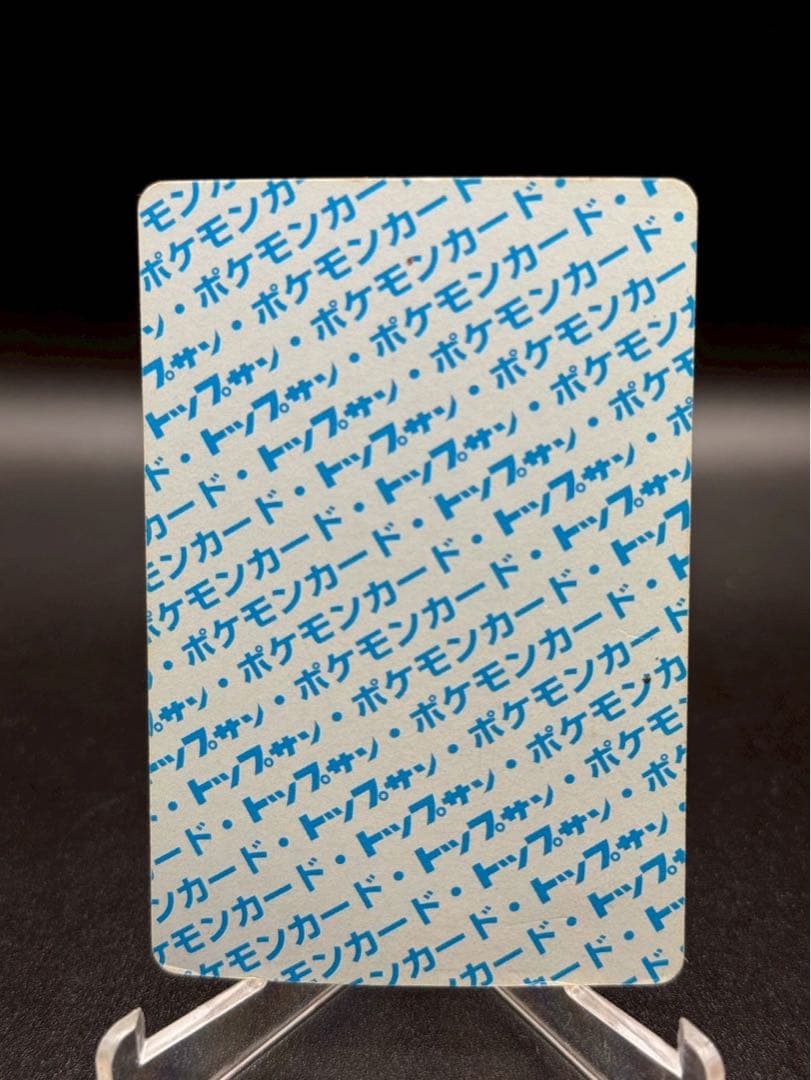 モンカ
ポケモンカー
ン・ポケモンカード
プサン・ポケモンカード
トップサン・ポケモンカード・
ド・トップサン・ポケモンカード・ト
カード・トップサン・ポケモンカード・
モンカード・トップサン・ポケモンカー
ポケモンカード・トップサン・ポケモンカ
・ポケモンカード・トップサン・ポケモ
プサン・ポケモンカード・トップサン・ポ
ップサン・ポケモンカード・トップサン
・トップサン・ポケモンカード・トップ
ード・トップサン・ポケモンカード・ト
ンカード・トップサン・ポケモンカード
ケモンカード・トップサン・ポケモンカ
ケモンカード・トップサン・ポケモ
ンカード・トップサン・ポケ
カード・トップサン・
ード・トップ
ド・ト
ド